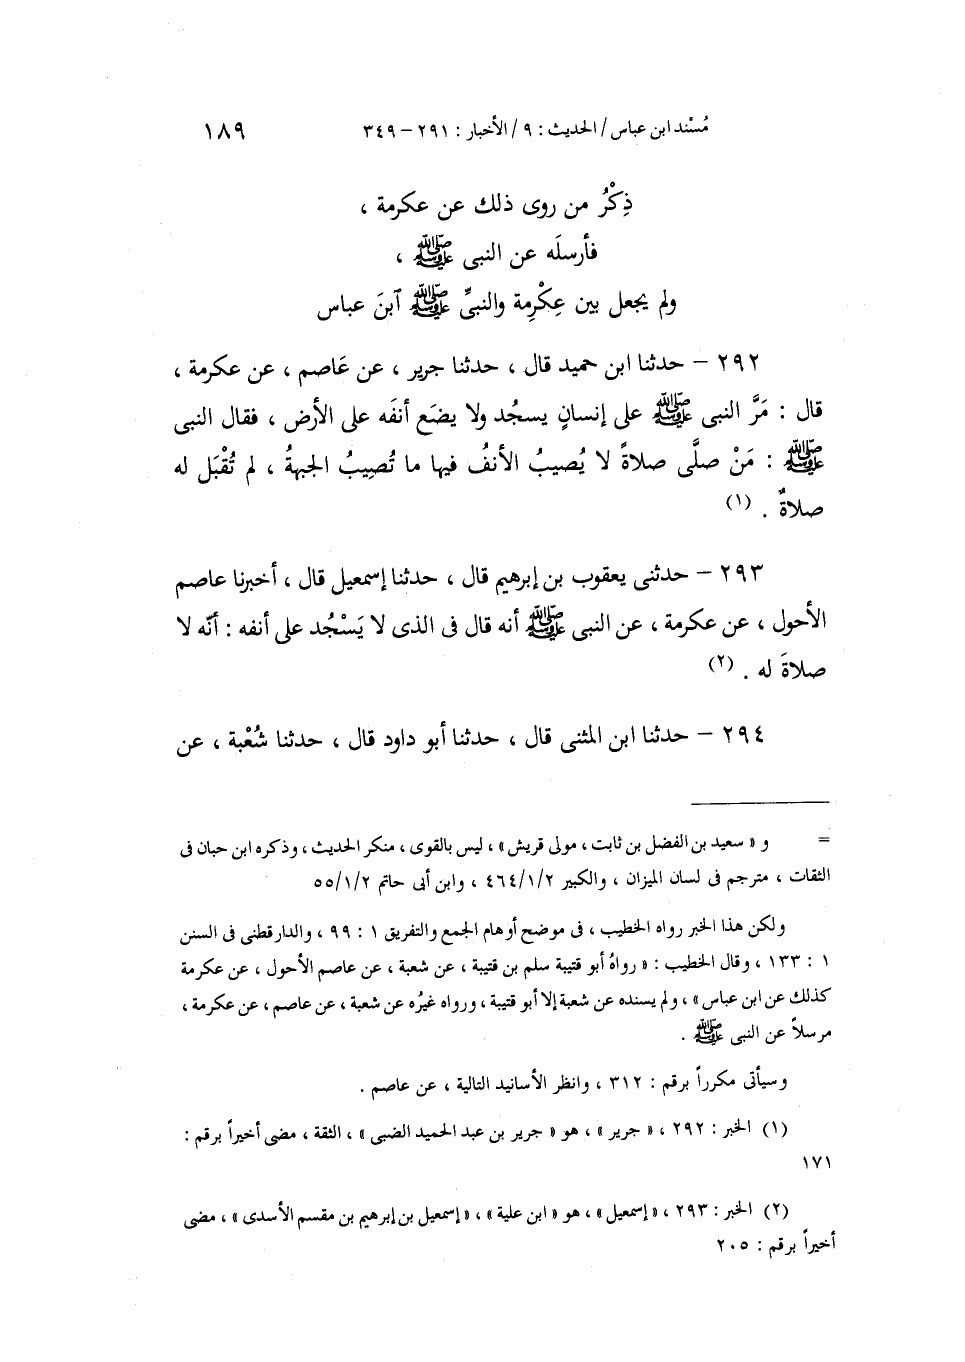 مُسْند ابن عباس / الحديث : ٩ / الأخبار : ٢٩١ – ٣٤٩ ١٨٩
ذِكْرُ من روى ذلك عن عكرمة ،
فأرسلَه عن النبى ﷺ ،
ولم يجعل بين عِكْرِمة والنبىِّ ﷺ آبنَ عباس
٢٩٢ – حدثنا ابن حميد قال ، حدثنا جرير ، عن عَاصم ، عن عكرمة ،
قال : مَرَّ النبى ﷺ على إنسانٍ يسجُد ولا يضَع أنفَه على الأرض ، فقال النبى
ﷺ : مَنْ صلَّى صلاةً لا يُصيبُ الأنفُ فيها ما تُصِيبُ الجبهةُ ، لم تُقْبَل له
صلاةٌ . (١)
٢٩٣ – حدثنى يعقوب بن إبرهيم قال ، حدثنا إسمعيل قال ، أخبرنا عاصم
الأحول ، عن عكرمة ، عن النبى ﷺ أنه قال فى الذى لا يَسْجُد على أنفه : أنّه لا
صلاةَ له . (٢)
٢٩٤ – حدثنا ابن المثنى قال ، حدثنا أبو داود قال ، حدثنا شُعْبة ، عن
= و « سعيد بن الفضل بن ثابت ، مولى قريش » ، ليس بالقوى ، منكر الحديث ، وذكره ابن حبان فى
الثقات ، مترجم فى لسان الميزان ، والكبير ٤٦٤/١/٢ ، وابن أبى حاتم ٥٥/١/٢
ولكن هذا الخبر رواه الخطيب ، فى موضح أوهام الجمع والتفريق ١ : ٩٩ ، والدارقطنى فى السنن
١ : ١٣٣ ، وقال الخطيب : « رواهُ أبو قتيبة سلم بن قتيبة ، عن شعبة ، عن عاصم الأحول ، عن عكرمة
كذلك عن ابن عباس » ، ولم يسنده عن شعبة إلا أبو قتيبة ، ورواه غيرُه عن شعبة ، عن عاصم ، عن عكرمة ،
مرسلاً عن النبى ﷺ .
وسيأتى مكرراً برقم : ٣١٢ ، وانظر الأسانيد التالية ، عن عاصم .
(١) الخبر : ٢٩٢ ، « جرير » ، هو « جرير بن عبد الحميد الضبى » ، الثقة ، مضى أخيراً برقم :
١٧١
(٢) الخبر : ٢٩٣ ، « إسمعيل » ، هو « ابن علية » ، « إسمعيل بن إبرهيم بن مقسم الأسدى » ، مضى
أخيراً برقم : ٢٠٥